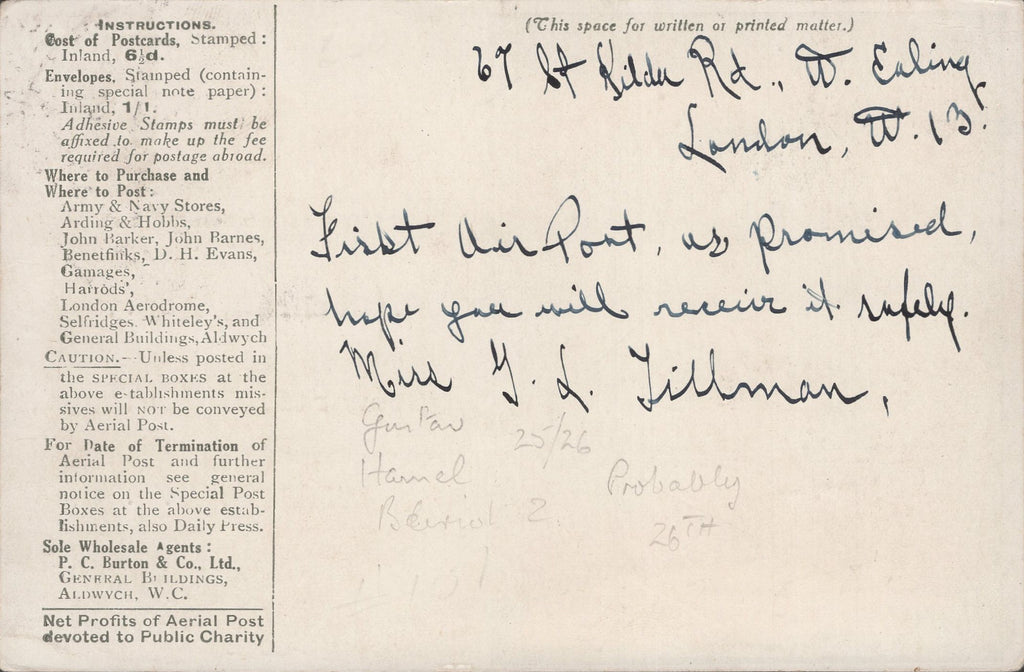 INSTRUCTIONS.
Cost of Postcards, Stamped:
Inland, 6½d.
Envelopes, Stamped (contain-
ing special note paper):
Inland, 1/1.
Adhesive Stamps must be
affixed to make up the fee
required for postage abroad.
Where to Purchase and
Where to Post:
Army & Navy Stores,
Arding & Hobbs,
John Barker, John Barnes,
Benetfinks, D. H. Evans,
Gamages,
Harrods',
London Aerodrome,
Selfridges, Whiteley's, and
General Buildings, Aldwych
CAUTION.—Unless posted in
the SPECIAL BOXES at the
above establishments mis-
sives will NOT be conveyed
by Aerial Post.
For Date of Termination of
Aerial Post and further
information see general
notice on the Special Post
Boxes at the above estab-
lishments, also Daily Press.
Sole Wholesale Agents:
P. C. Burton & Co., Ltd.,
GENERAL BUILDINGS,
ALDWYCH, W.C.
Net Profits of Aerial Post
devoted to Public Charity
(This space for written or printed matter.)
67 St Kilda Rd., W. Ealing
London, W. 13.
First Air Post, as promised,
hope you will receive it safely.
Miss G. L. Tillman,
Gustav 25/26
Hamel Probably
Bleriot 2 26TH